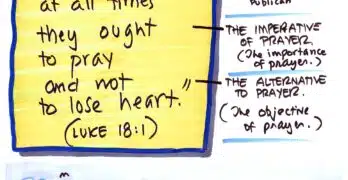 at all times
they ought
to pray
and not
to lose heart."
(LUKE 18:1)
PUBLICAN
THE IMPERATIVE
OF PRAYER
(The importance
of prayer.)
THE ALTERNATIVE
TO PRAYER.
(The objective
of prayer.)